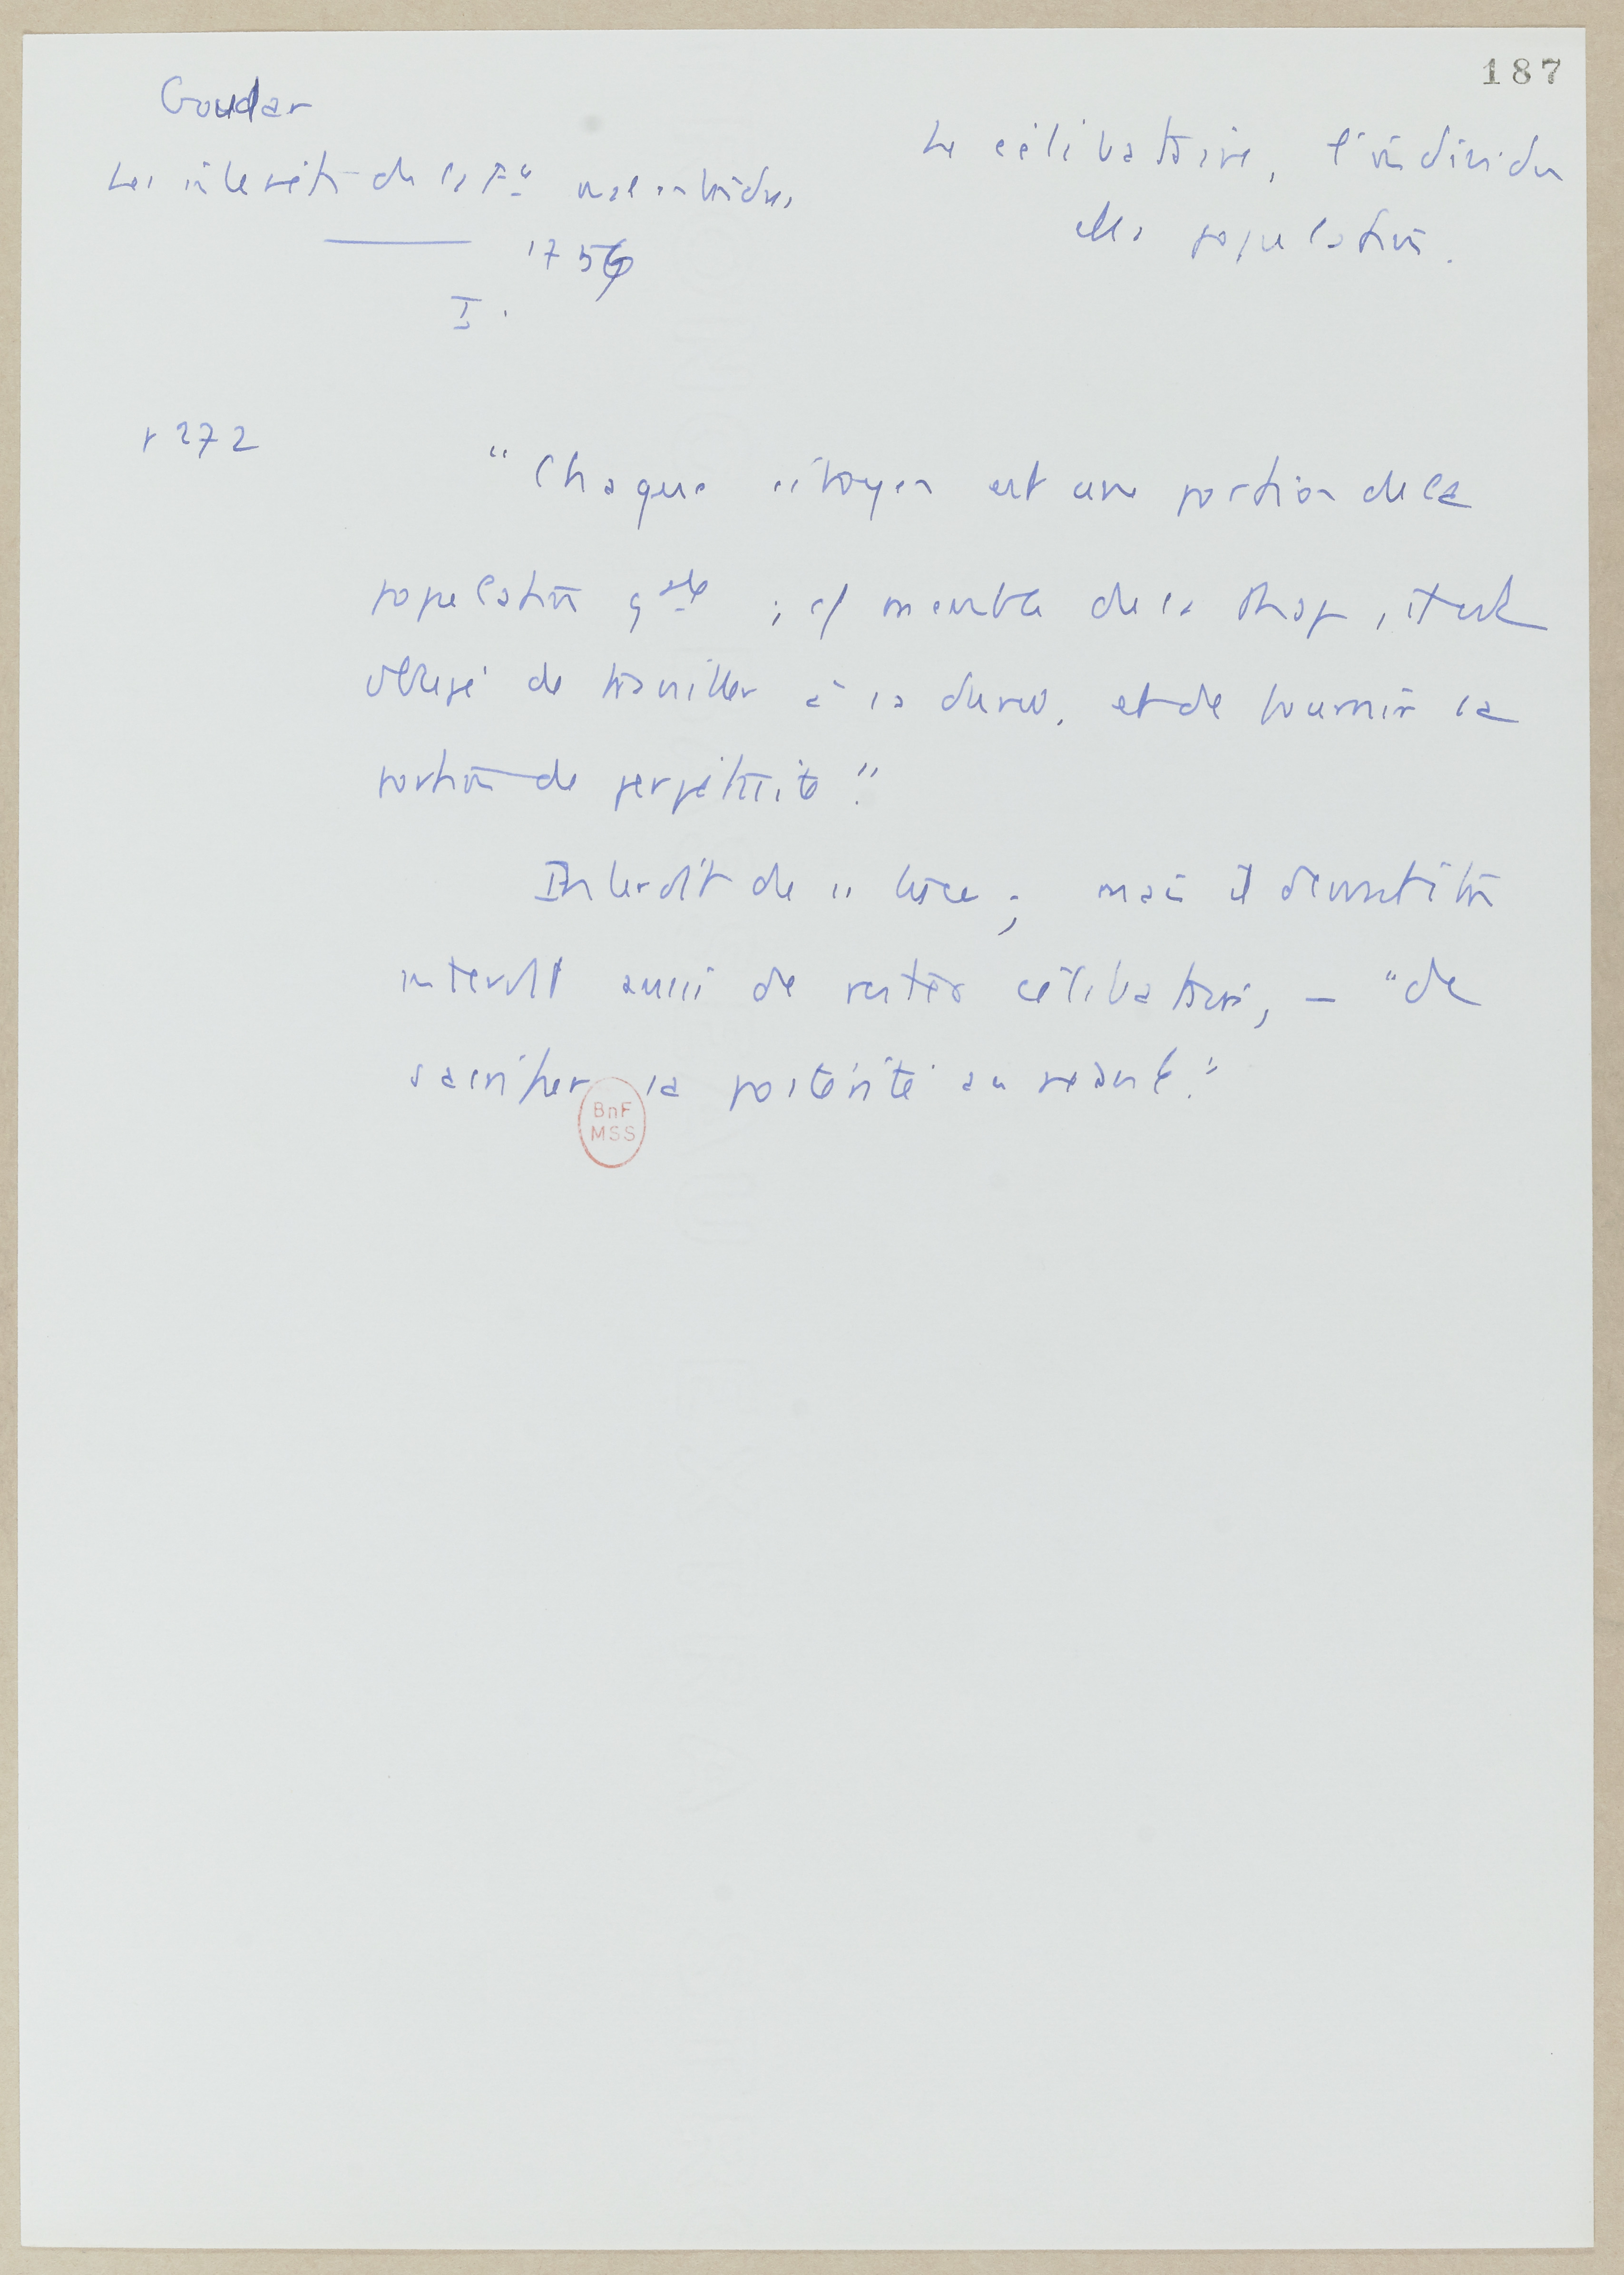 187
Goudar
Les intérêts de la Fce mal entendus
1756
I.
Le célibataire, l'individu
et la population.
p 272
"Chaque citoyen est une portion de la
population gale ; c/ membre de la , il est
obligé de travailler à la durée, et de fournir sa
portion de perpétuité."
Interdit de se tuer ; mais il devrait être
interdit aussi de rester célibataire, – "de
sacrifier sa postérité au néant."
BnF
MSS